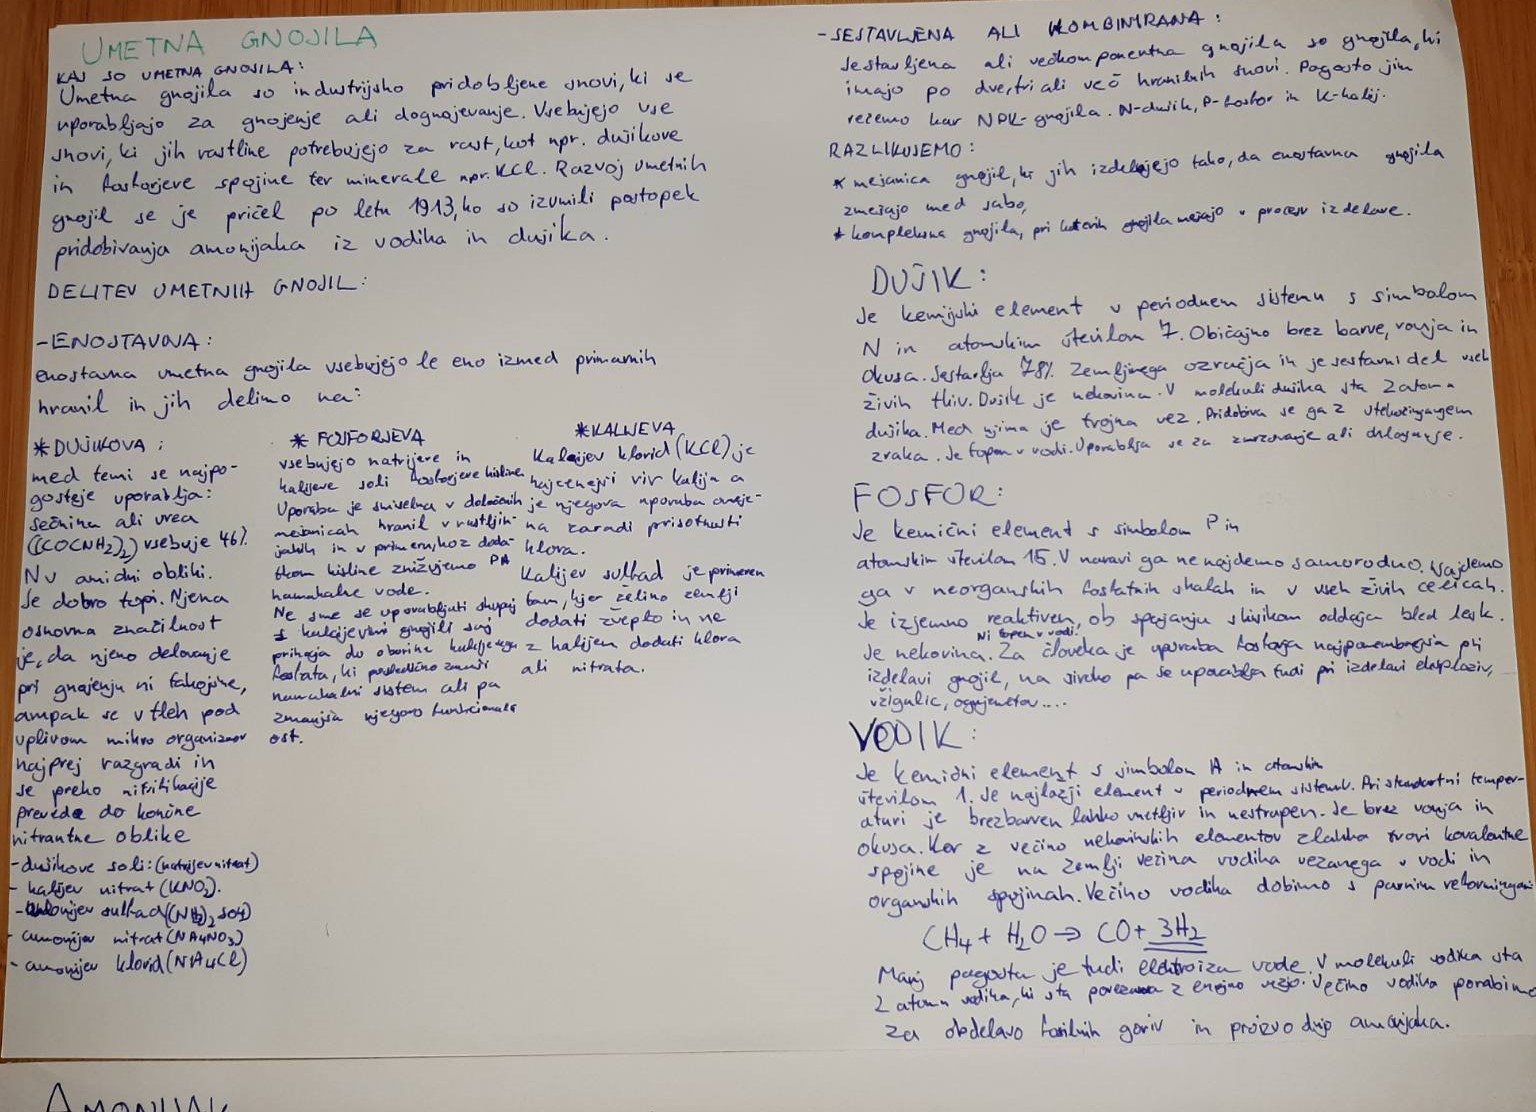 UMETNA GNOJILA
KAJ SO UMETNA GNOJILA:
Umetna gnojila so industrijsko pridobljene snovi, ki se
uporabljajo za gnojenje ali dognojevanje. Vsebujejo vse
snovi, ki jih rastline potrebujejo za rast, kot npr. dušikove
in fosforjeve spojine ter minerale npr. KCl. Razvoj umetnih
gnojil se je pričel po letu 1913, ko so izumili postopek
pridobivanja amonijaka iz vodika in dušika.
DELITEV UMETNIH GNOJIL:
-ENOSTAVNA:
enostavna umetna gnojila vsebujejo le eno izmed primarnih
hranil in jih delimo na:
* DUŠIKOVA:
med temi se najpo-
gosteje uporablja:
sečnina ali urea
((CO(NH2)2) vsebuje 46%
N v amidni obliki.
Je dobro topi. Njena
osnovna značilnost
je, da njeno delovanje
pri gnojenju ni takojšne,
ampak se v tleh pod
vplivom mikro organizmov
najprej razgradi in
se preko nitrifikacije
prevede do končne
nitratne oblike
-dušikove soli: (natrijev nitrat)
- kalijev nitrat (KNO3).
- amonijev sulfat ((NH4)2SO4)
- amonijev nitrat (NH4NO3)
- amonijev klorid (NH4Cl)
* FOSFORJEVA
vsebujejo natrijeve in
kalijeve soli fosforjeve kisline
Uporaba je smiselna v določenih
mešanicah hranil v rastlin-
jakih in v primeru, ko z doda-
tkom kisline znižujemo PH
namakalne vode.
Ne sme se uporabljati skupaj
s kalcijevimi gnojili saj
prihaja do oborine kalcijevega
fosfata, ki posledično zamaši
namakalni sistem ali pa
zmanjša njegovo funkcionaln
ost.
* KALIJEVA
Kalijev klorid (KCl) je
najcenejši vir kalija a
je njegova uporaba omeje-
na zaradi prisotnosti
klora.
Kalijev sulfad je primeren
tam, kjer želimo zemlji
dodati žveplo in ne
z kalijem dodati klora
ali nitrata.
-SESTAVLJENA ALI KOMBINIRANA:
sestavljena ali večkomponentna gnojila so gnojila, ki
imajo po dve, tri ali več hranilnih snovi. Pogosto jim
rečemo kar NPK-gnojila. N-dušik, P-fosfor in K-kalij.
RAZLIKUJEMO:
* mešanica gnojil, ki jih izdelujejo tako, da enostavna gnojila
zmešajo med sabo,
* kompleksna gnojila, pri katerih gnojila mešajo v procesu izdelave.
DUŠIK:
Je kemijski element v periodnem sistemu s simbolom
N in atomskim številom 7. Običajno brez barve, vonja in
okusa. Sestavlja 78% Zemljinega ozračja in je sestavni del vseh
živih tkiv. Dušik je nekovina. V molekuli dušika sta 2 atoma
dušika. Med njima je trojna vez. Pridobiva se ga z utekočinjanjem
zraka. Je topen v vodi. Uporablja se za zmrzovanje ali
FOSFOR:
Je kemični element s simbolom P in
atomskim številom 15. V naravi ga ne najdemo samorodno. Najdemo
ga v neorganskih fosfatnih skalah in v vseh živih celicah.
Je izjemno reaktiven, ob spajanju s kisikom oddaja bled lesk.
Ni topen v vodi.
Je nekovina. Za človeka je uporaba fosforja najpomembnejša pri
izdelavi gnojil, na široko pa se uporablja tudi pri izdelavi eksploziv,
vžigalic, ognjemetov....
VODIK:
Je kemični element s simbolom H in atomskim
številom 1. Je najlažji element v periodnem sistemu. Pri standardni temper-
aturi je brezbarven lahko vnetljiv in nestrupen. Je brez vonja in
okusa. Ker z večino nekovinskih elementov zlahka tvori kovalentne
spojine je na Zemlji večina vodika vezanega v vodi in
organskih spojinah. Večino vodika dobimo s parnim reformingom
CH4 + H2O → CO + 3H2
Manj pogosta je tudi elektroliza vode. V molekuli vodika sta
2 atoma vodika, ki sta povezana z enojno vezjo. Večino vodika porabimo
za obdelavo fosilnih goriv in proizvodnjo amonijaka.
AMONIJAK